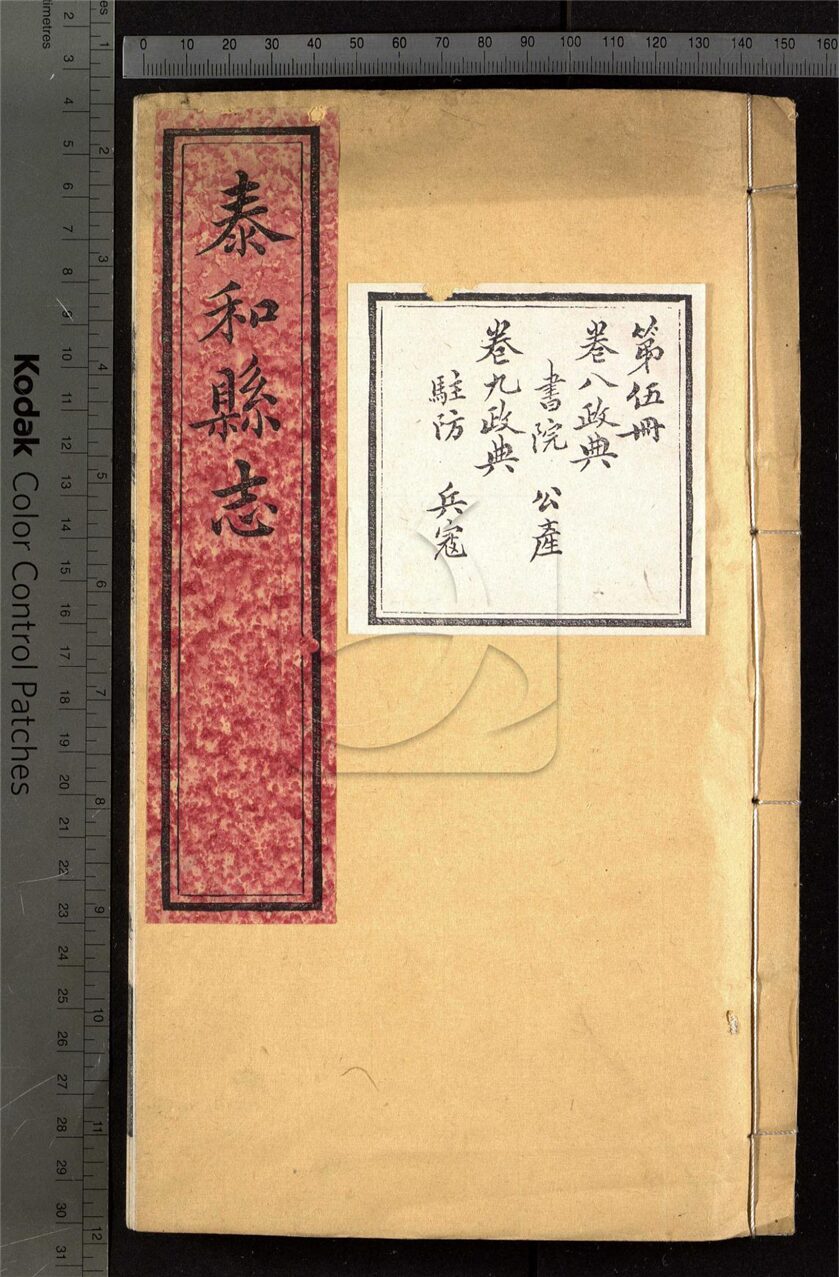 泰和縣志
第伍冊
卷八政典
書院 公產
卷九政典
駐防 兵寇
Kodak Color Control Patches
0 10 20 30 40 50 60 70 80 90 100 110 120 130 140 150 160
2 3 4 5 6 7 8 9 10 11 12 13 14 15 16 17 18 19 20 21 22 23 24 25 26 27 28 29 30 31
1 2 3 4 5 6 7 8 9 10 11 12